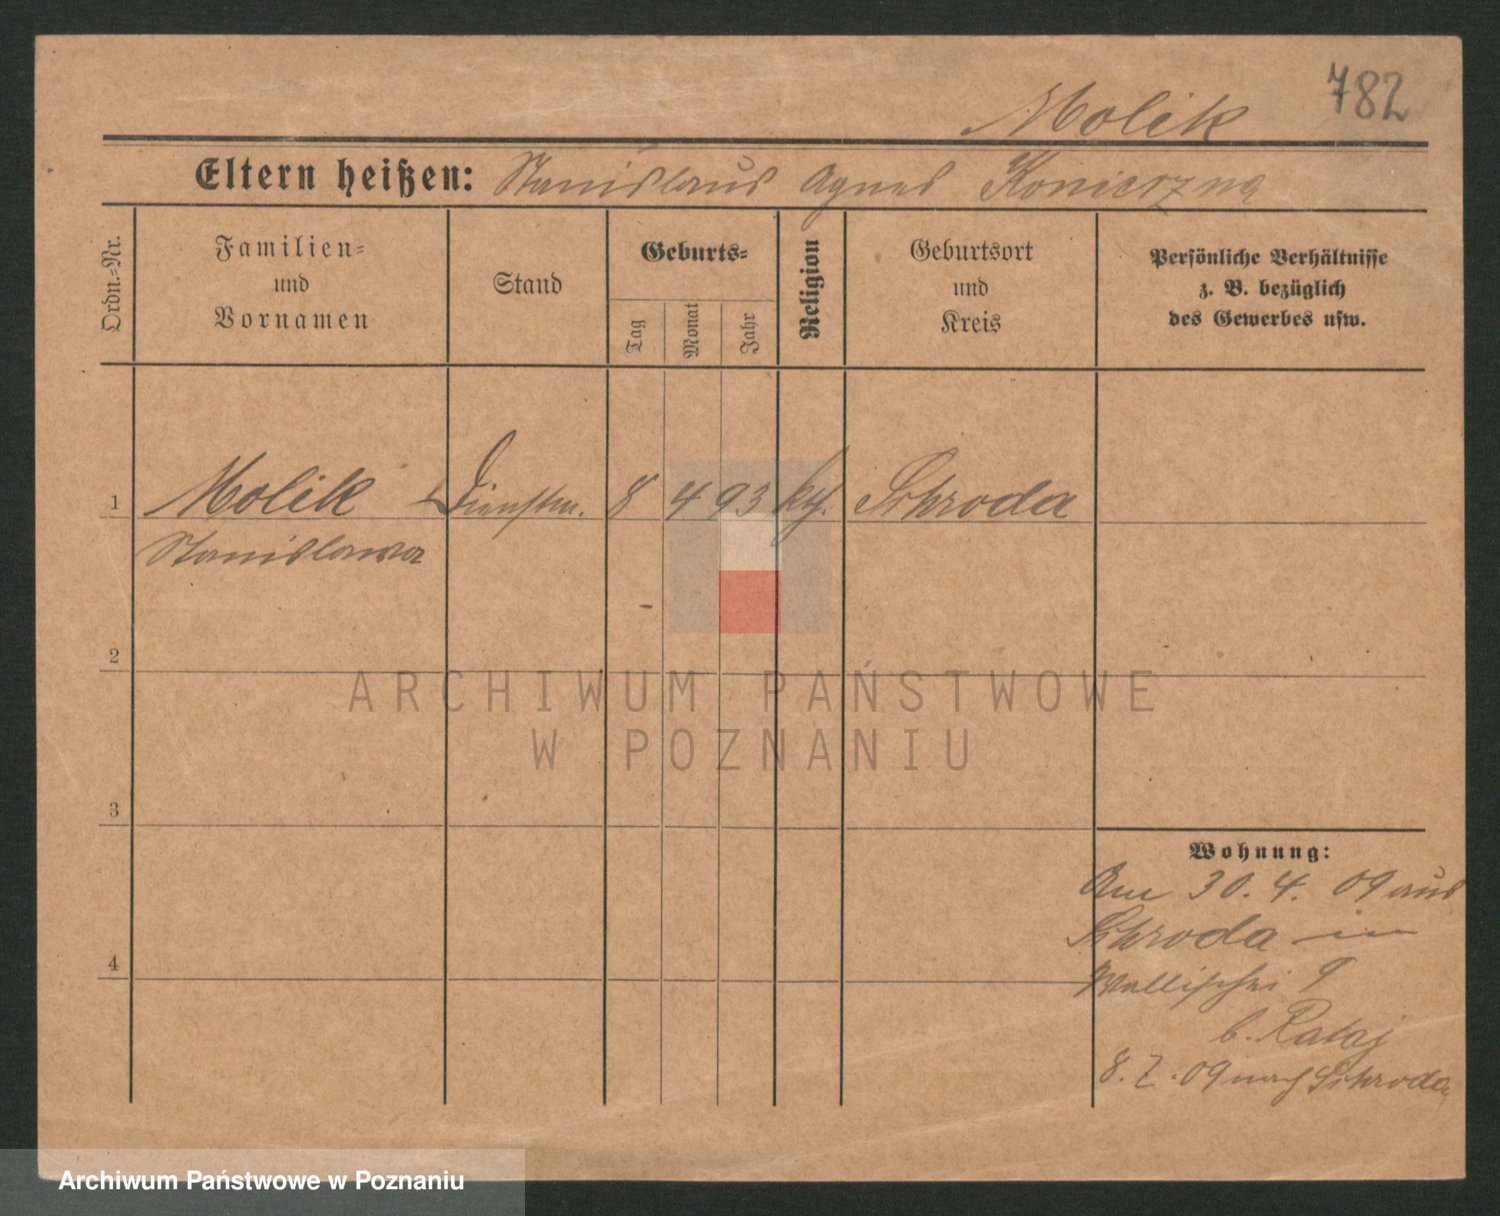 782
Molik
Eltern heißen: Stanislaus Agnes Konieczna
Ordn.-Nr.
Familien- und Vornamen
Stand
Geburts-
Tag
Monat
Jahr
Religion
Geburtsort und Kreis
Persönliche Verhältnisse
z. B. bezüglich
des Gewerbes usw.
1 Molik Dienstm. 8 4 93 kth. Schroda
Stanislawa
2
ARCHIWUM PAŃSTWOWE
W POZNANIU
3
Wohnung:
Am 30. 4. 09 aus
Schroda in
4
Wallischei 9
b. Rataj
8. 7. 09 nach Schroda
Archiwum Państwowe w Poznaniu